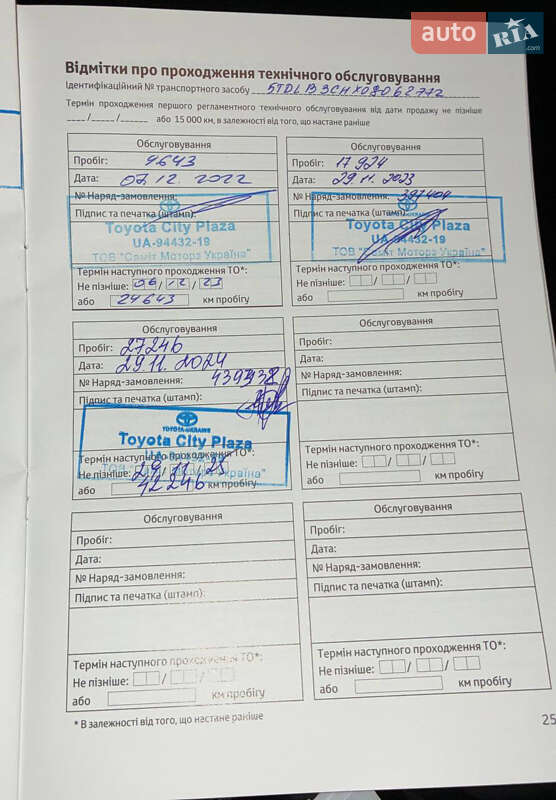 auto RIA.com
Відмітки про проходження технічного обслуговування
Ідентифікаційний № транспортного засобу
Термін проходження першого регламентного технічного обслуговування від дати продажу не пізніше
____/____/______ або 15 000 км, в залежності від того, що настане раніше
Обслуговування
Пробіг: 9643
Дата: 07.12.2022
№ Наряд-замовлення:
Підпис та печатка (штамп):
Toyota City Plaza
UA-94432-19
ТОВ "Саміт Моторз Україна"
Термін наступного проходження ТО*:
Не пізніше: 06/12/23
або 24643 км пробігу
Обслуговування
Пробіг: 17924
Дата: 29.11.2023
№ Наряд-замовлення: 397404
Підпис та печатка (штамп):
Toyota City Plaza
UA-94432-19
ТОВ "Саміт Моторз Україна"
Термін наступного проходження ТО*:
Не пізніше:
або км пробігу
Обслуговування
Пробіг: 27246
Дата: 29.11.2024
№ Наряд-замовлення:
Підпис та печатка (штамп):
TOYOTA-UKRAINE
Toyota City Plaza
Термін наступного проходження ТО*:
Не пізніше: 29/11/25
або 42246 км пробігу
Обслуговування
Пробіг:
Дата:
№ Наряд-замовлення:
Підпис та печатка (штамп):
Термін наступного проходження ТО*:
Не пізніше:
або км пробігу
Обслуговування
Пробіг:
Дата:
№ Наряд-замовлення:
Підпис та печатка (штамп):
Термін наступного проходження ТО*:
Не пізніше:
або км пробігу
Обслуговування
Пробіг:
Дата:
№ Наряд-замовлення:
Підпис та печатка (штамп):
Термін наступного проходження ТО*:
Не пізніше:
або км пробігу
* В залежності від того, що настане раніше
25